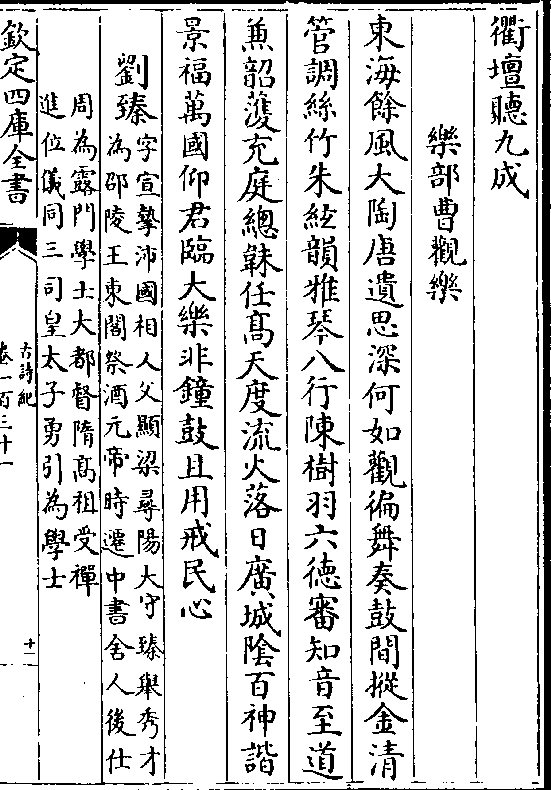 衢壇聽九成
樂部曹觀樂
東海餘風大陶唐遺思深何如觀徧舞奏鼓間摐金清
管調絲竹朱絃韻雅琴八行陳樹羽六德審知音至道
兼韶濩充庭總韎任髙天度流火落日廣城陰百神諧
景福萬國仰君臨大樂非鐘鼓且用戒民心
劉臻
字宣摯沛國相人父顯梁尋陽大守臻舉秀才
為邵陵王東閣祭酒元帝時遷中書舍人後仕
周為露門學士大都督隋髙祖受禪
進位儀同三司皇太子勇引為學士
欽定四庫全書
古詩紀
卷一百三十一
十一